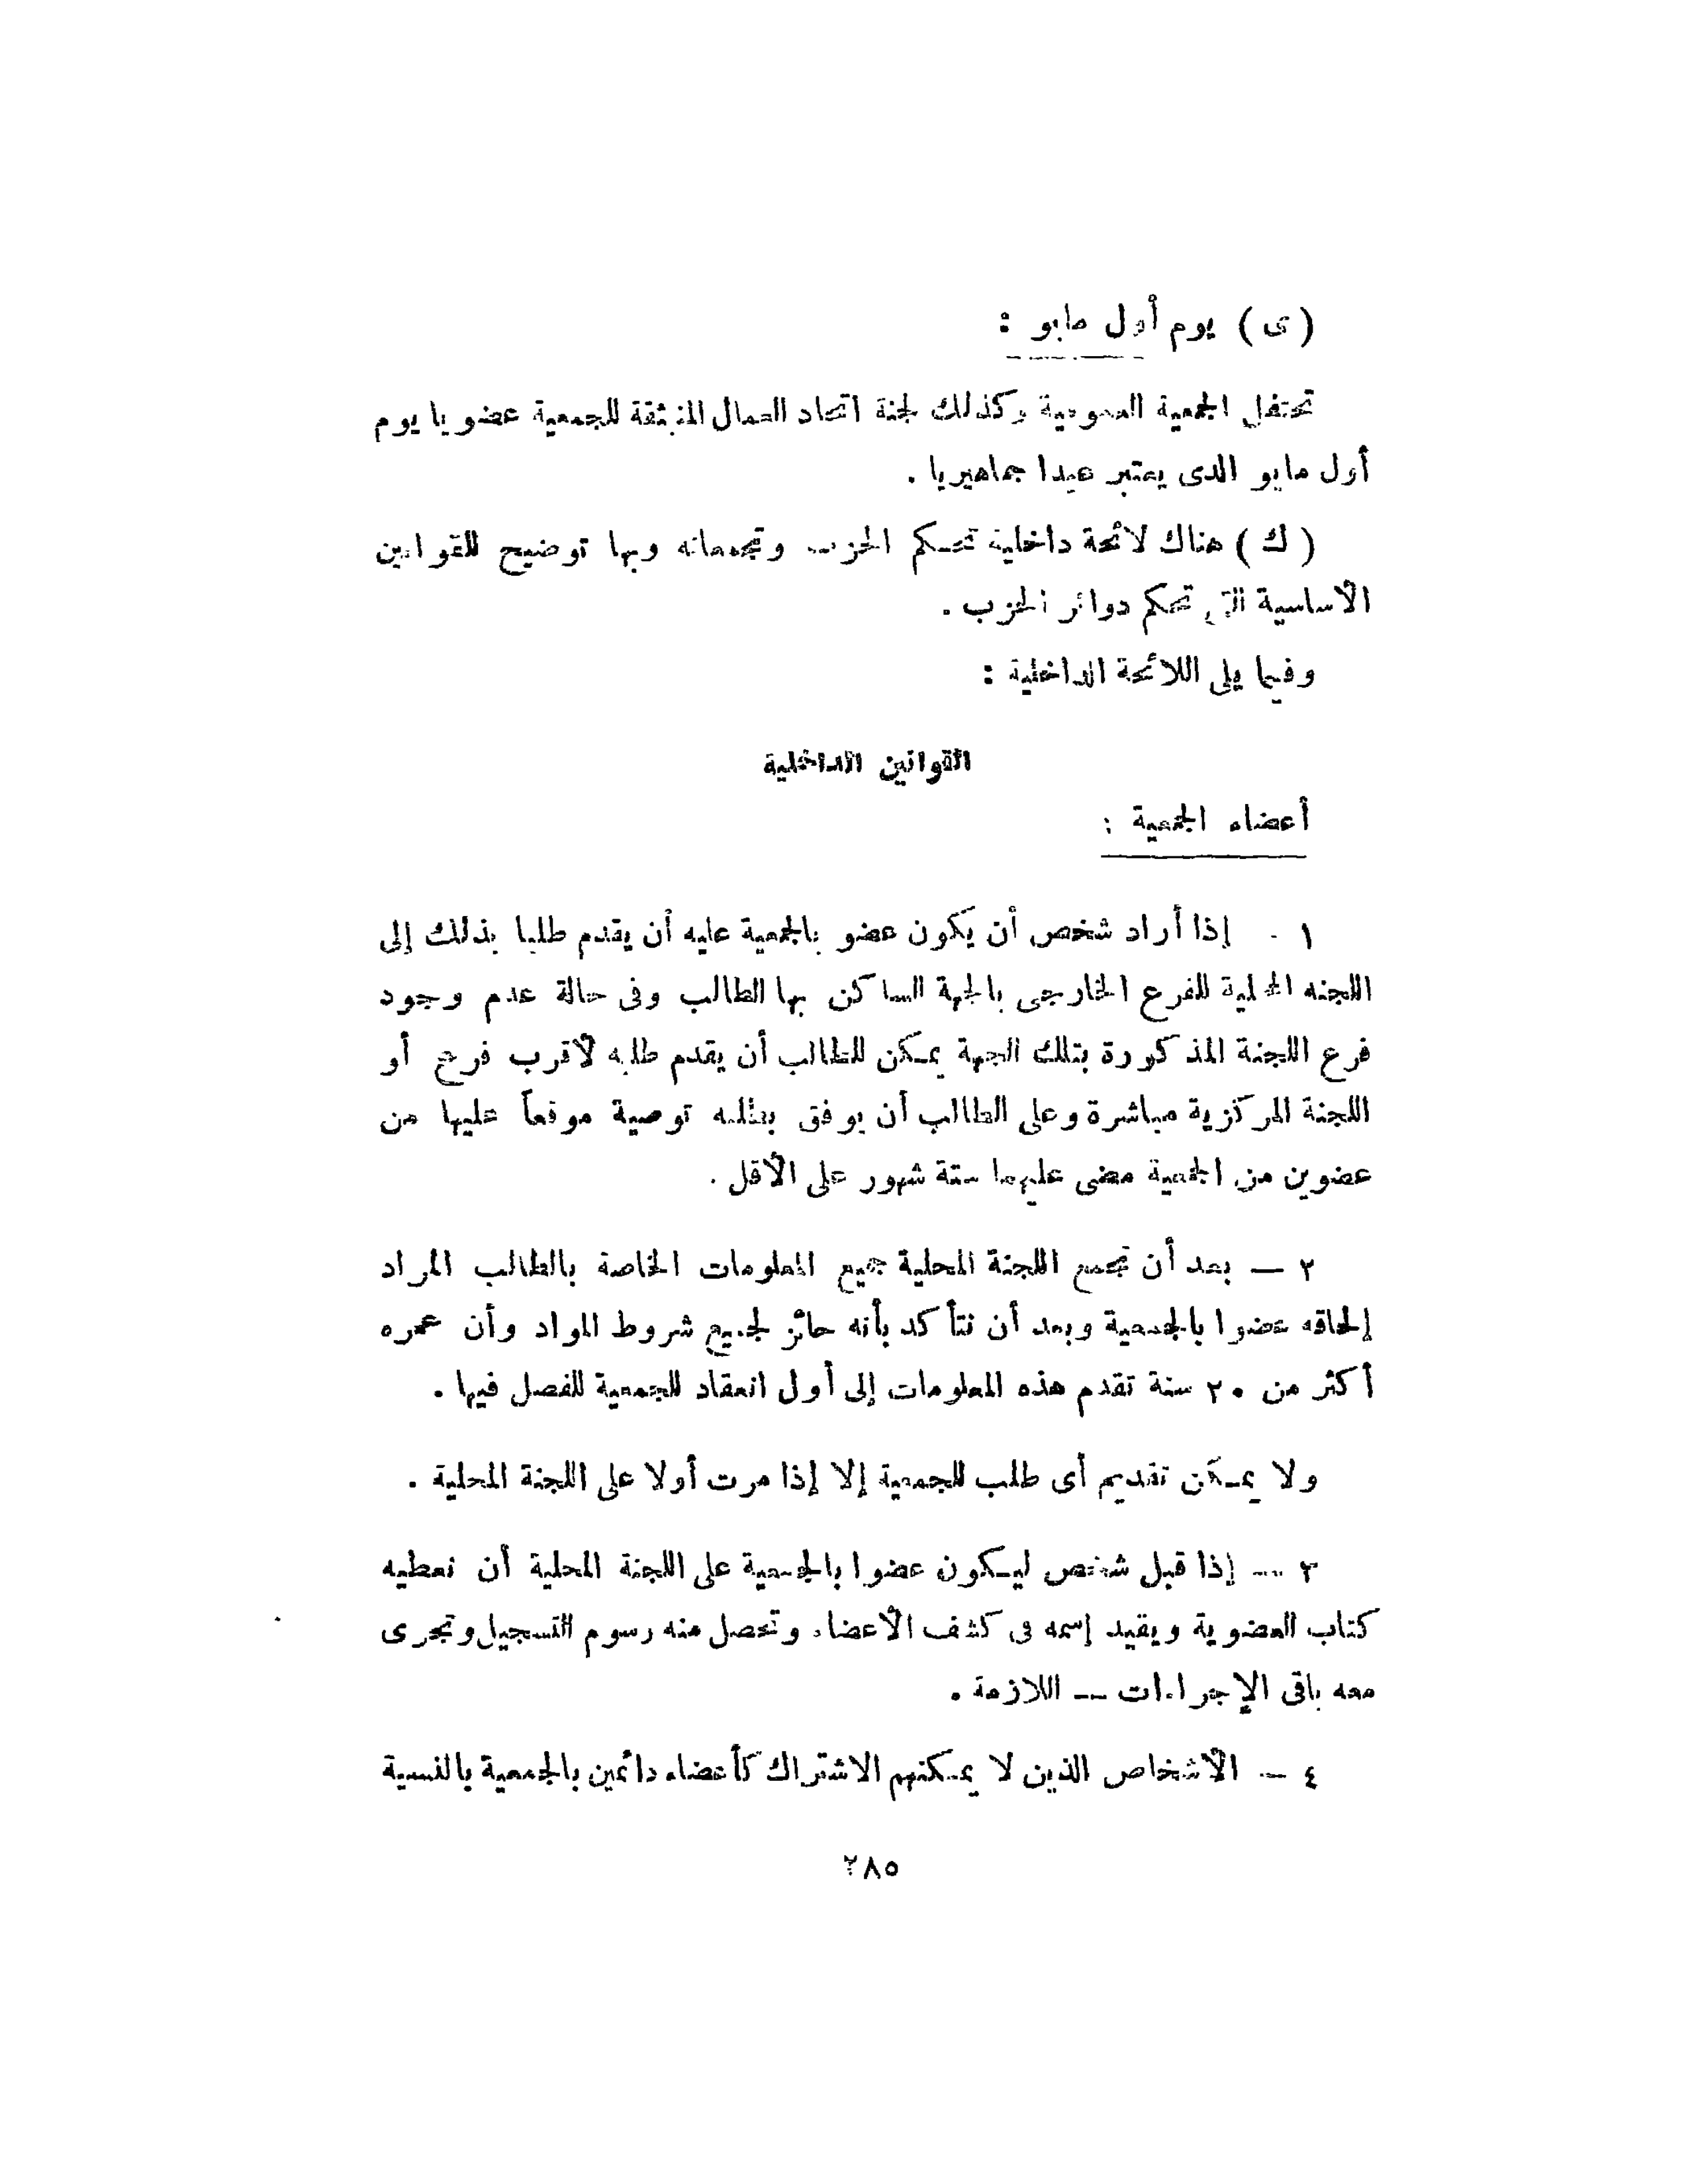 ( ى ) يوم أول مايو :
تحتفل الجمعية العمومية وكذلك لجنة اتحاد العمال المنبثقة للجمعية عضويا يوم
أول مايو الذى يعتبر عيدا جماهيريا .
( ك ) هناك لائحة داخلية تحكم الحزب وتجمعاته وبها توضيح للقوانين
الأساسية التى تحكم دوائر الحزب .
وفيما يلى اللائحة الداخلية :
القوانين الداخلية
أعضاء الجمعية :
١ - إذا أراد شخص أن يكون عضو بالجمعية عليه أن يقدم طلبا بذلك إلى
اللجنه المحلية للفرع الخارجى بالجهة الساكن بها الطالب وفى حالة عدم وجود
فرع اللجنة المذكورة بتلك الجهة يمكن للطالب أن يقدم طلبه لأقرب فرع أو
اللجنة المركزية مباشرة وعلى الطالب أن يوفق بطلبه توصية موقعاً عليها من
عضوين من الجمعية مضى عليهما ستة شهور على الأقل .
٢ — بعد أن تجمع اللجنة المحلية جميع المعلومات الخاصة بالطالب المراد
إلحاقه عضوا بالجمعية وبعد أن تتأكد بأنه حائز لجميع شروط المواد وأن عمره
أكثر من ٢٠ سنة تقدم هذه المعلومات إلى أول انعقاد للجمعية للفصل فيها .
ولا يمكن تقديم أى طلب للجمعية إلا إذا مرت أولا على اللجنة المحلية .
٣ — إذا قبل شخص ليكون عضوا بالجمعية على اللجنة المحلية أن تعطيه
كتاب العضوية ويقيد إسمه فى كشف الأعضاء وتحصل منه رسوم التسجيل وتجرى
معه باقى الإجراءات — اللازمة .
٤ — الأشخاص الذين لا يمكنهم الاشتراك كأعضاء دائمين بالجمعية بالنسبة
٢٨٥